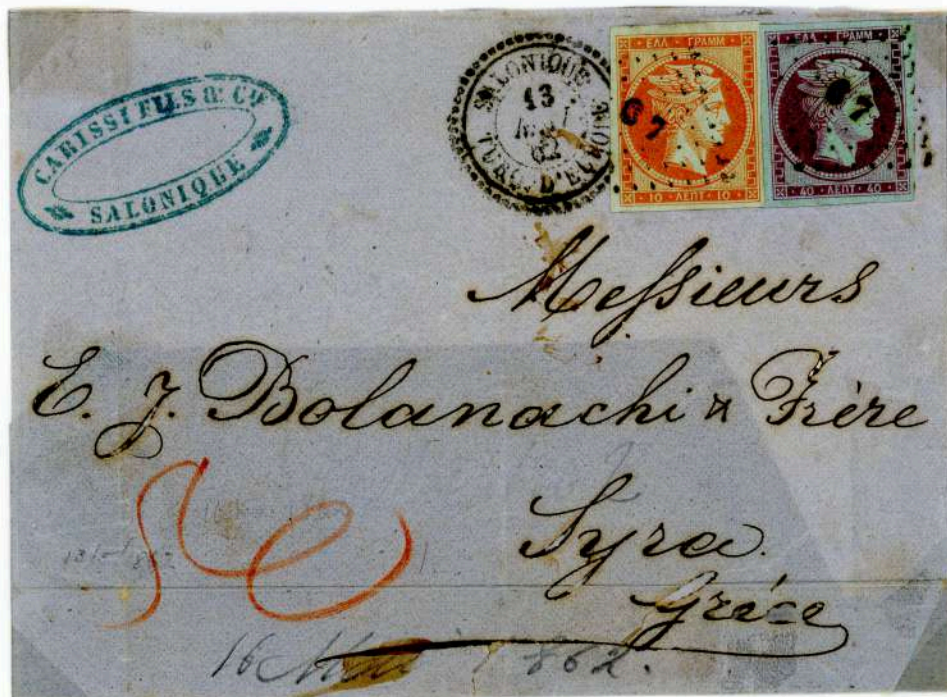 CABISSI FILS & Cº
SALONIQUE
SALONIQUE
13
MAI
62
TURQ. D'EUROPE
ΕΛΛ ΓΡΑΜΜ
10 ΛΕΠΤ 10
67
ΕΛΛ ΓΡΑΜΜ
40 ΛΕΠΤ 40
67
Messieurs
E. J. Bolanachi & Frère
Syra
Grèce
16 1862.